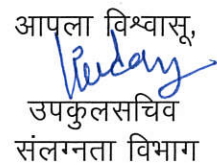 आपला विश्वासू,
उपकुलसचिव
संलग्नता विभाग